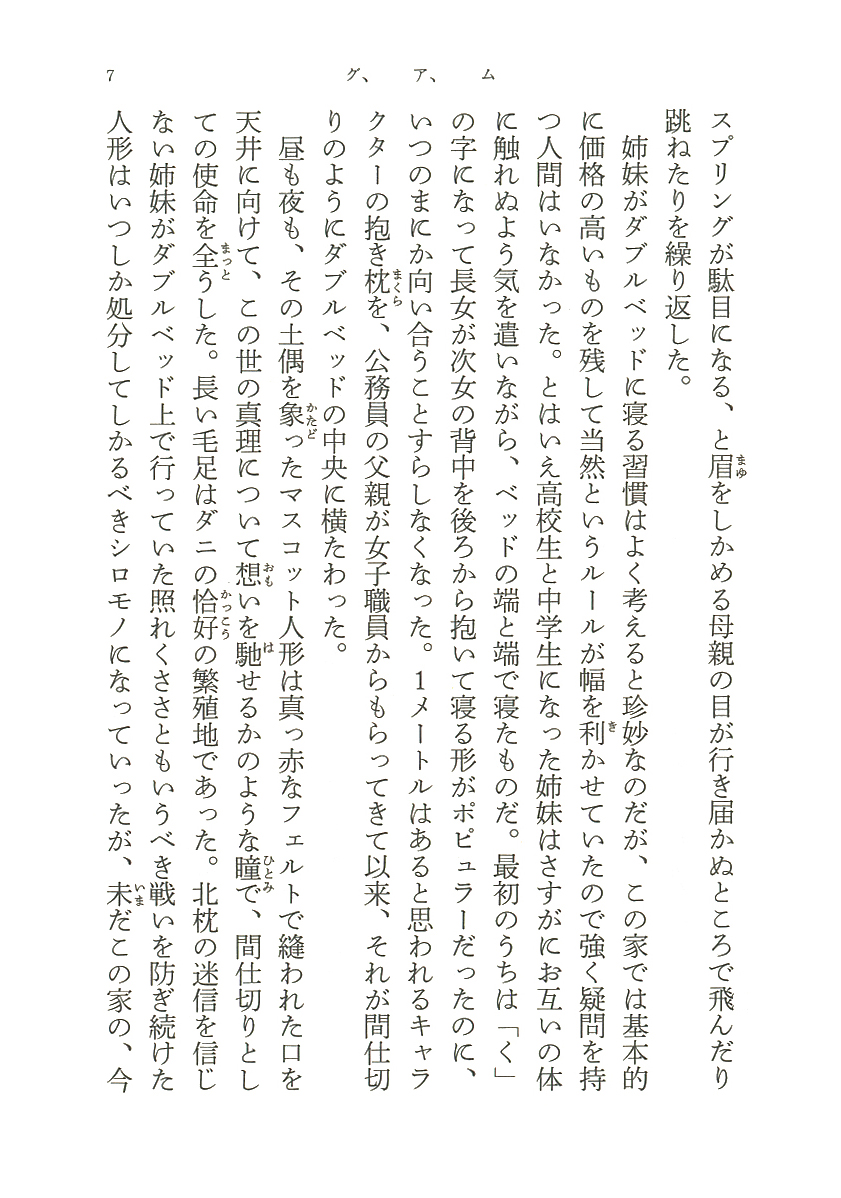 7
グ、ア、ム
スプリングが駄目になる、と眉をしかめる母親の目が行き届かぬところで飛んだり
跳ねたりを繰り返した。
姉妹がダブルベッドに寝る習慣はよく考えると珍妙なのだが、この家では基本的
に価格の高いものを残して当然というルールが幅を利かせていたので強く疑問を持
つ人間はいなかった。とはいえ高校生と中学生になった姉妹はさすがにお互いの体
に触れぬよう気を遣いながら、ベッドの端と端で寝たものだ。最初のうちは「く」
の字になって長女が次女の背中を後ろから抱いて寝る形がポピュラーだったのに、
いつのまにか向い合うことすらしなくなった。1メートルはあると思われるキャラ
クターの抱き枕を、公務員の父親が女子職員からもらってきて以来、それが間仕切
りのようにダブルベッドの中央に横たわった。
昼も夜も、その土偶を象ったマスコット人形は真っ赤なフェルトで縫われた口を
天井に向けて、この世の真理について想いを馳せるかのような瞳で、間仕切りとし
ての使命を全うした。長い毛足はダニの恰好の繁殖地であった。北枕の迷信を信じ
ない姉妹がダブルベッド上で行っていた照れくささともいうべき戦いを防ぎ続けた
人形はいつしか処分してしかるべきシロモノになっていったが、未だこの家の、今